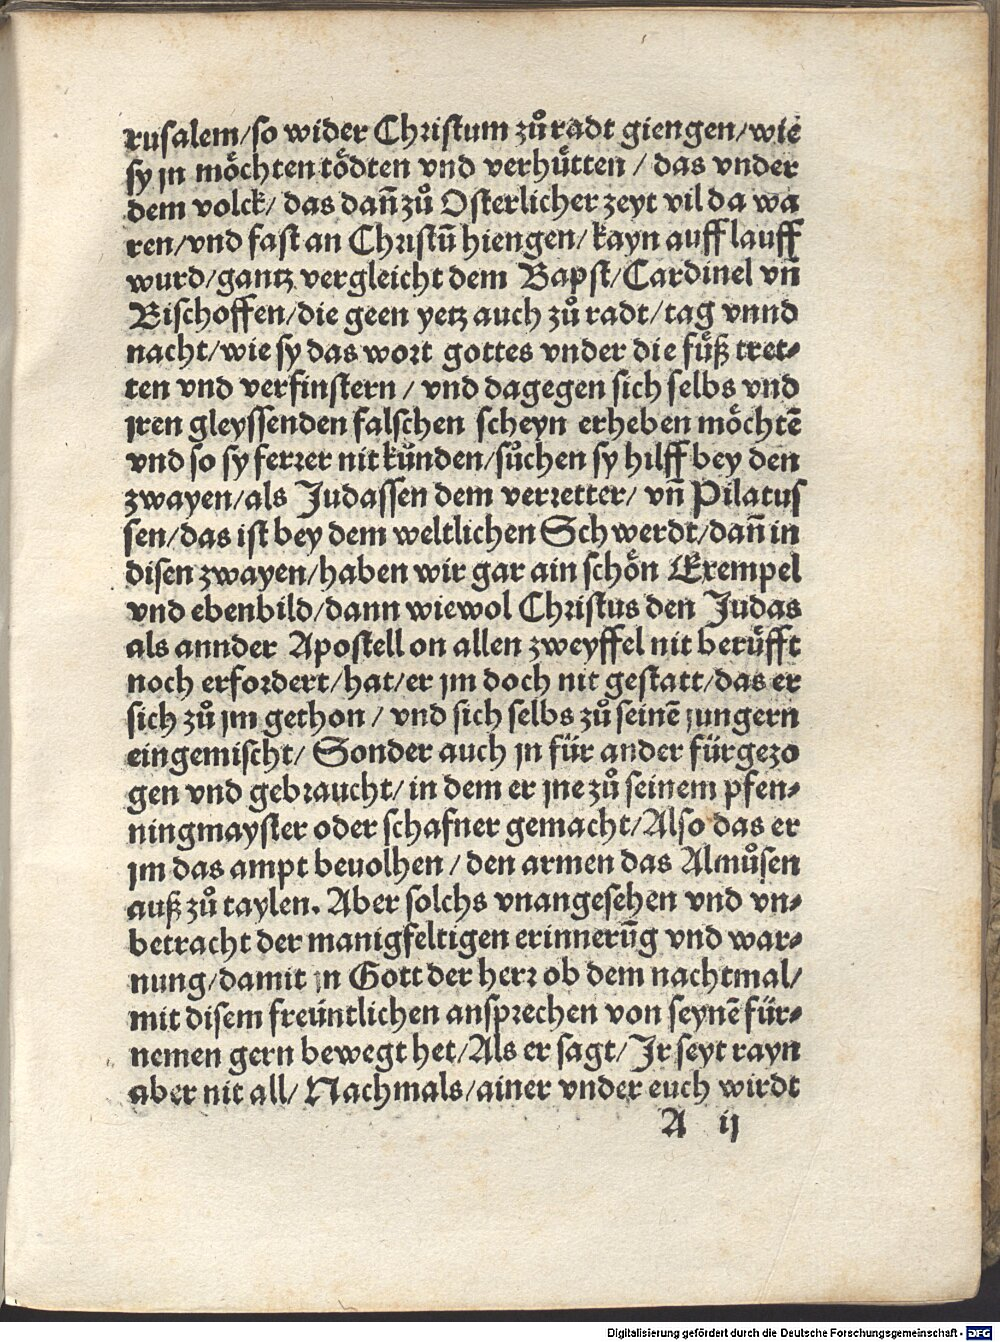 rusalem/so wider Christum zů radt giengen/wie
sy jn möchten tödten vnd verhütten / das vnder
dem volck/ das dañ zů Osterlicher zeyt vil da wa
ren/vnd fast an Christū hiengen/ kayn auff lauff
wurd/gantz vergleicht dem Bapst/Cardinel vñ
Bischoffen/die geen yetz auch zů radt/tag vnnd
nacht/wie sy das wort gottes vnder die füß tret⸗
ten vnd verfinstern / vnd dagegen sich selbs vnd
jren gleyssenden falschen scheyn erheben möchtē
vnd so sy ferrer nit künden/sůchen sy hilff bey den
zwayen/als Judassen dem verretter/ vñ Pilatus
sen/das ist bey dem weltlichen Schwerdt/dañ in
disen zwayen/haben wir gar ain schön Exempel
vnd ebenbild/dann wiewol Christus den Judas
als annder Apostell on allen zweyffel nit berüfft
noch erfordert/hat/er jm doch nit gestatt/das er
sich zů jm gethon / vnd sich selbs zů seinē jungern
eingemischt/ Sonder auch jn für ander fürgezo
gen vnd gebraucht/ in dem er jne zů seinem pfen⸗
ningmayster oder schafner gemacht/Also das er
jm das ampt beuolhen / den armen das Almůsen
auß zů taylen. Aber solchs vnangesehen vnd vn⸗
betracht der manigfeltigen erinnerūg vnd war⸗
nung/damit jn Gott der herr ob dem nachtmal/
mit disem freüntlichen ansprechen von seynē für⸗
nemen gern bewegt het/Als er sagt/Jr seyt rayn
aber nit all/ Nachmals/ainer vnder euch wirdt
A ij
Digitalisierung gefördert durch die Deutsche Forschungsgemeinschaft - DFG